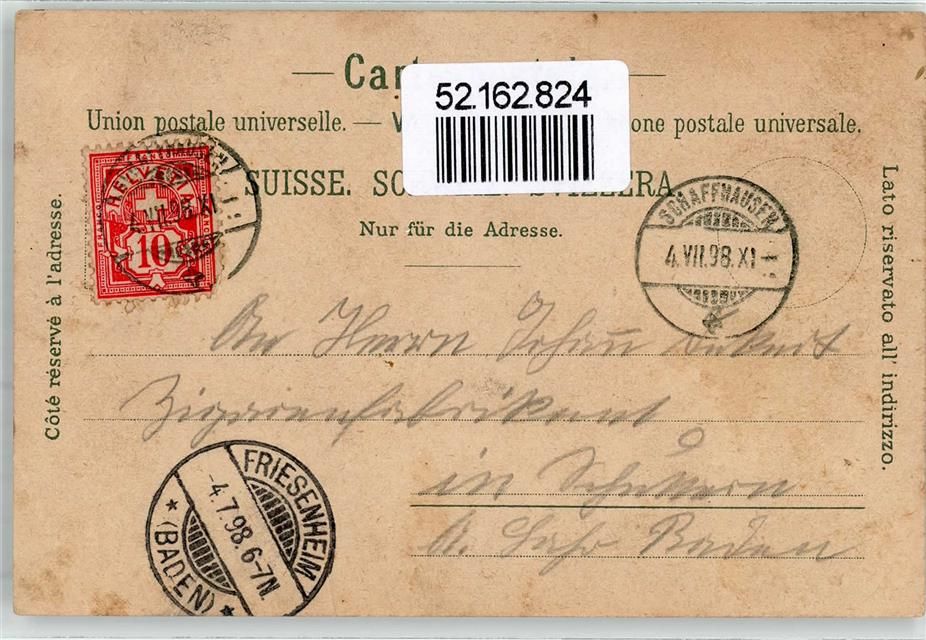 52.162.824
Union postale universelle. — one postale universale.
SUISSE.
Nur für die Adresse.
Côté réservé à l'adresse.
Lato riservato all' indirizzo.
HELVETIA
10
4.VII.98.XI
SCHAFFHAUSEN
4.VII.98.XI
An Herrn Johann
Zigarrenfabrikant
in
b. Lahr Baden
FRIESENHEIM
4.7.98.6-7N.
* (BADEN) *